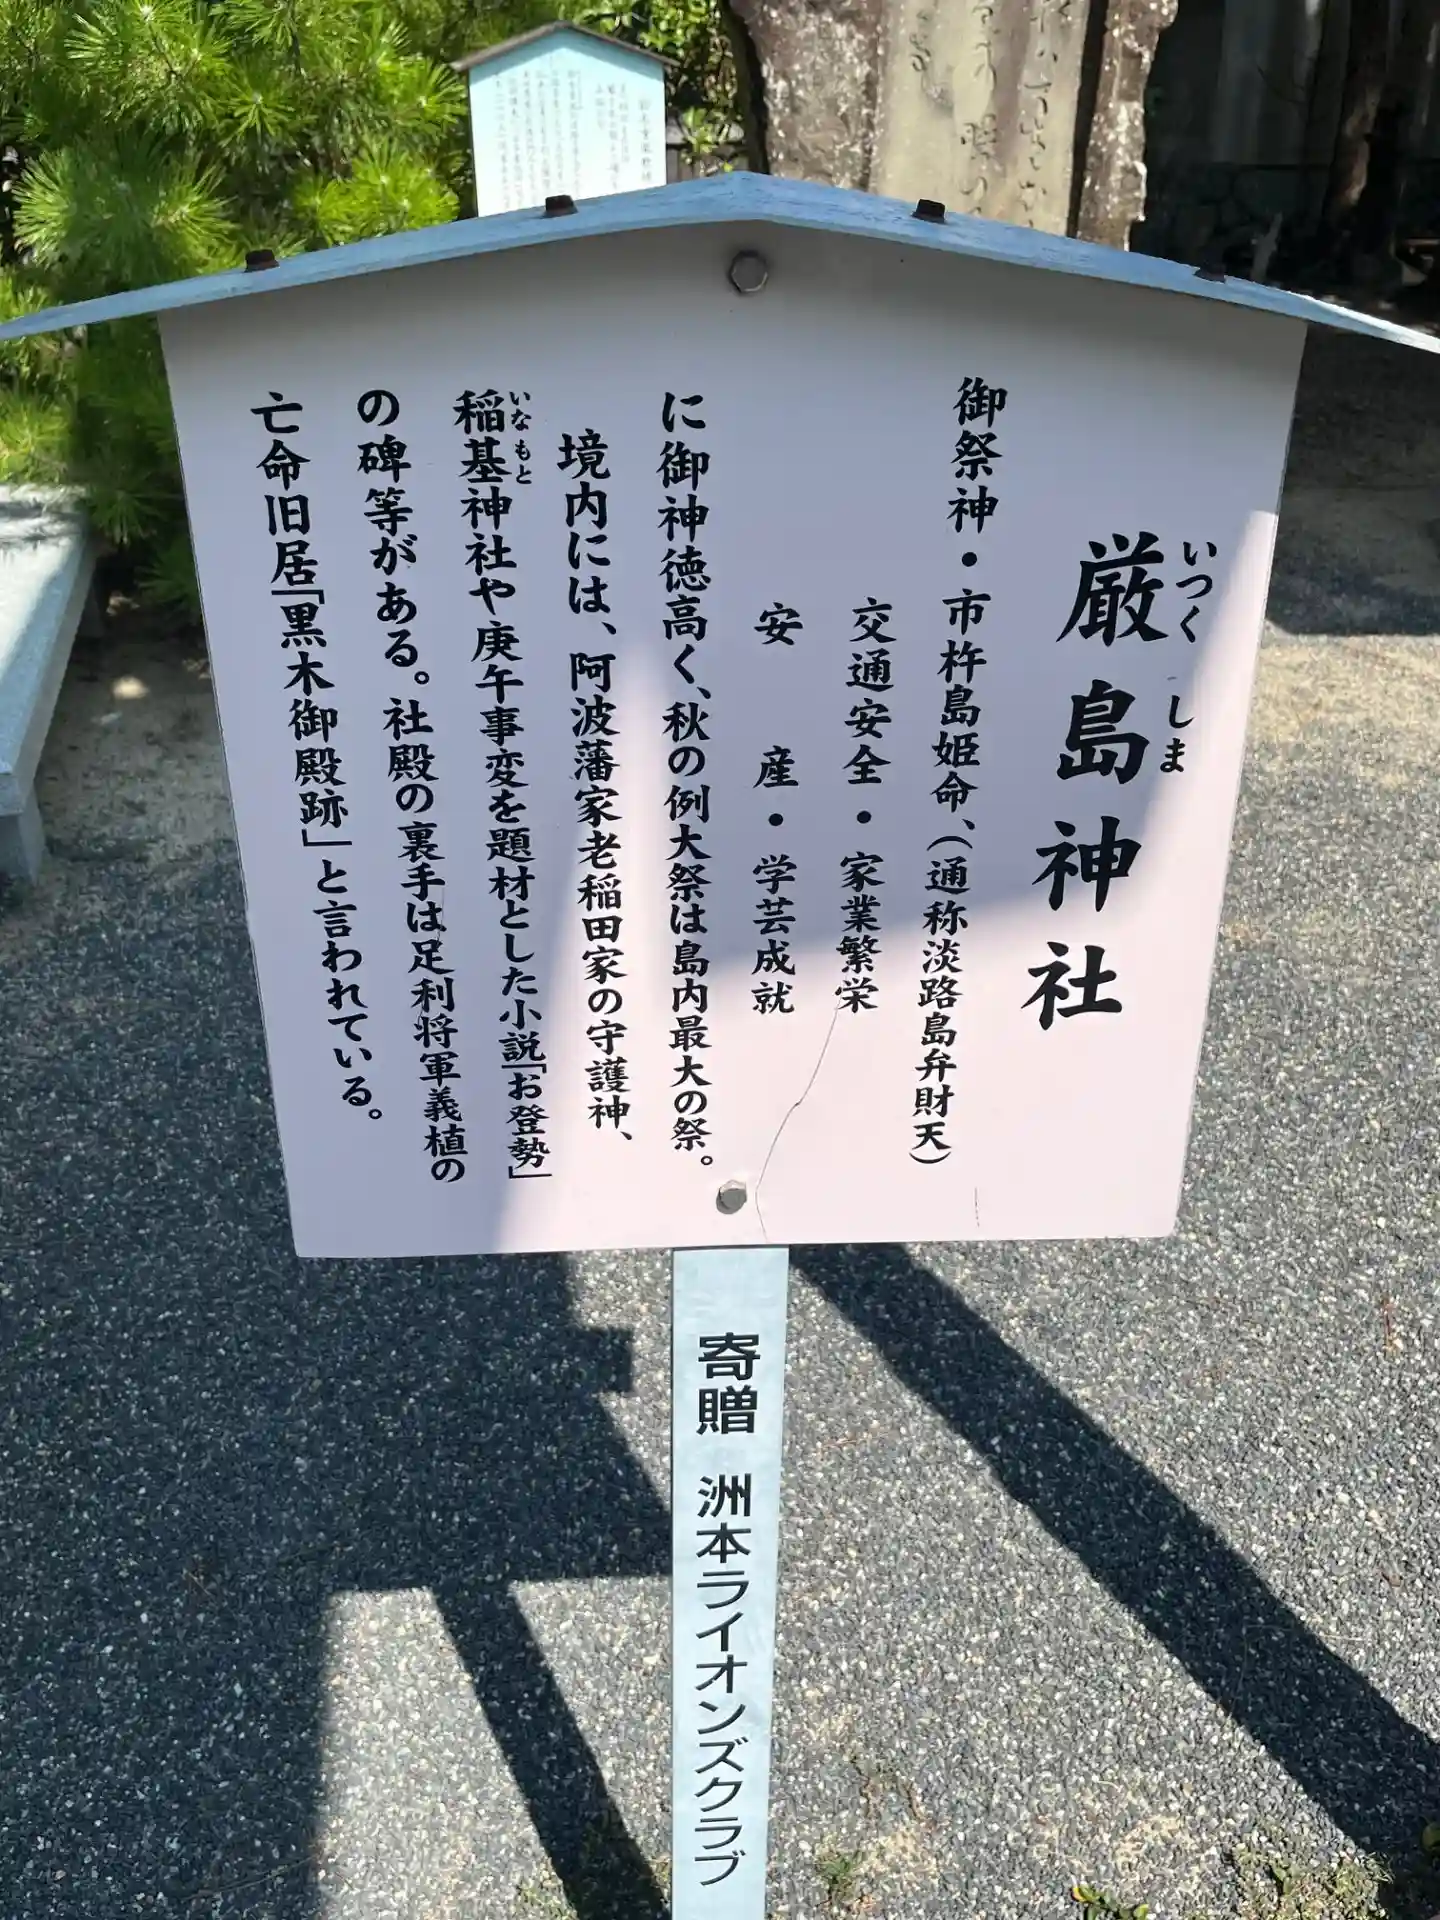 厳島神社
いつくしま
御祭神・市杵島姫命、(通称淡路島弁財天)
交通安全・家業繁栄
安産・学芸成就
に御神徳高く、秋の例大祭は島内最大の祭。
境内には、阿波藩家老稲田家の守護神、
稲基神社や庚午事変を題材とした小説「お登勢」
いなもと
の碑等がある。社殿の裏手は足利将軍義植の
亡命旧居「黒木御殿跡」と言われている。
寄贈 洲本ライオンズクラブ